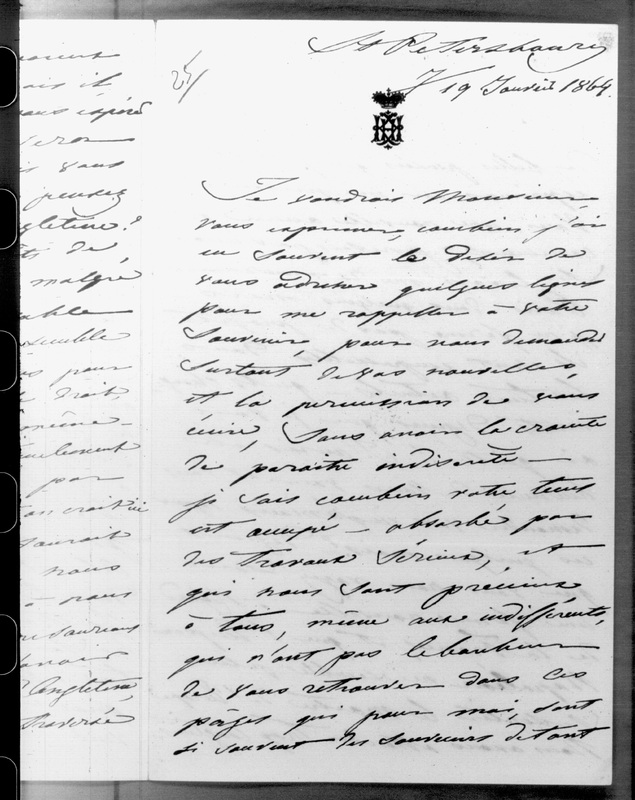 St Petersbourg
7/19 Janvier 1864.
24/
Je voudrais Monsieur,
vous exprimer, combien j'ai
eu souvent le désir de
vous adresser quelques lignes
pour me rappeller à votre
souvenir, pour vous demander
surtout de vos nouvelles,
et la permission de vous
écrire, sans avoir la crainte
de paraitre indiscrète —
je sais combien votre tems
est occupé — absorbé par
des travaux sérieux, et
qui nous sont précieux
à tous, même aux indifférents,
qui n'ont pas le bonheur
de vous retrouver dans ces
pages qui pour moi, sont
si souvent des souvenirs de tant
ais il
vous
pensez
ngleterre?
de
malgré
semble
pour
droit,
par
saurait
nous
à nous
l'Angleterre,
traversée